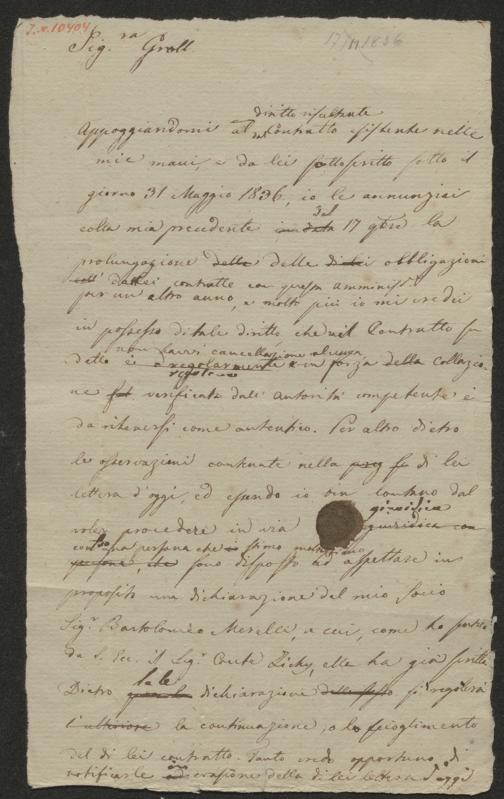 I.N. 10404
17/11 1836
Sig.ra Groll
diritto risultante
Appoggiandomi al del Contratto esistente nelle
mie mani, e da lei sottoscritto sotto il
giorno 31 Maggio 1836, io le annunziai
colla mia precedente in data del 17 9bre la
prolungazione delle delle di lei obbligazioni
da lei contratte con questa amminist.
per un altro anno, e molto più io mi credei
in possesso di tale diritto che il Contratto su
non havvi cancellazione alcuna
detto è regolarmente e in forza della collazio
ne verificata dall'autorità competente è
da ritenersi come autentico. Per altro dietro
le osservazioni contenute nella di lei
lettera d'oggi, ed essendo io ben lontano dal
giuridica
voler procedere in via giuridica con
contro una persona che io stimo
persona, che sono disposto ad aspettare in
proposito una dichiarazione del mio Socio
Sig.r Bartolomeo Merelli, a cui, come ho
da S. Ecc. il Sig.r Conte Zichy, ella ha già scritto
tale
Dietro dichiarazione dello stesso si regolerà
l'ulteriore la continuazione, o lo scioglimento
del di lei contratto. Tanto credo opportuno di
notificarle ad evasione della di lei lettera d'oggi